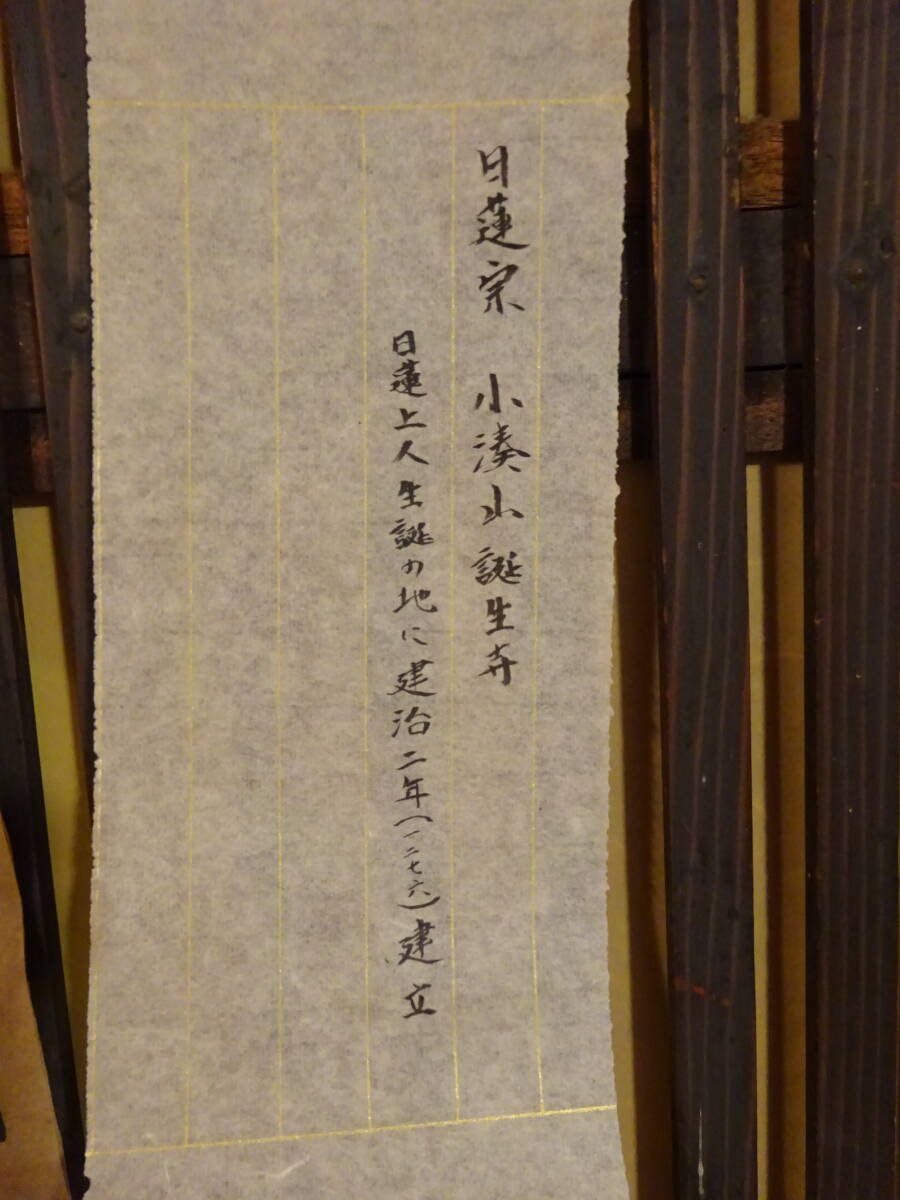 日蓮宗 小湊山誕生寺
日蓮上人生誕の地に建治二年(一二七六)建立